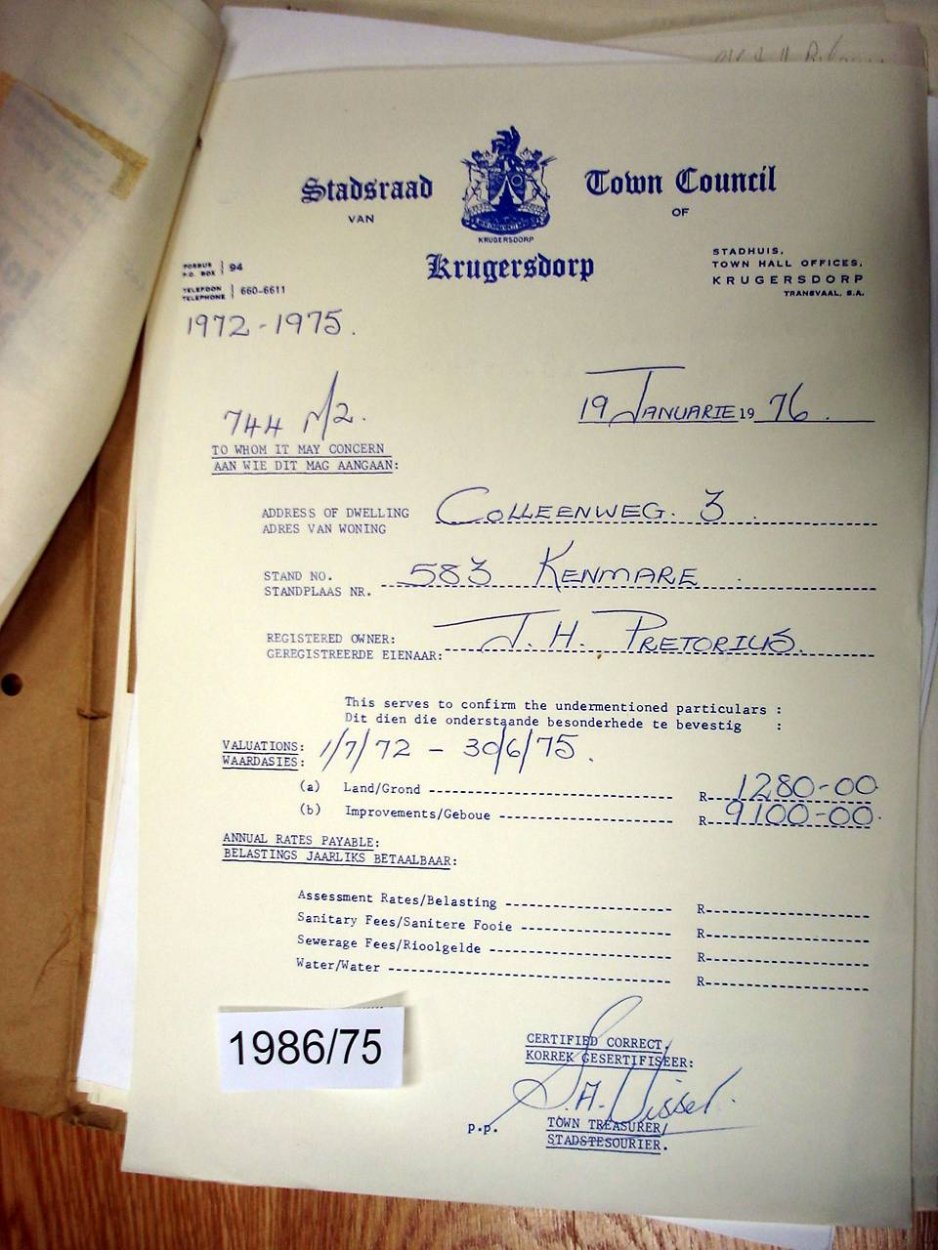 Stadsraad Town Council
VAN OF
KRUGERSDORP
Krugersdorp
POSBUS
P.O. BOX 94
TELEFOON
TELEPHONE 660-6611
STADHUIS,
TOWN HALL OFFICES,
KRUGERSDORP
TRANSVAAL, S.A.
1972-1975.
19 JANUARIE 19 76.
744 M2.
TO WHOM IT MAY CONCERN
AAN WIE DIT MAG AANGAAN:
ADDRESS OF DWELLING COLLEENWEG. 3
ADRES VAN WONING
STAND NO. 583 KENMARE
STANDPLAAS NR.
REGISTERED OWNER: J. H. PRETORIUS.
GEREGISTREERDE EIENAAR:
This serves to confirm the undermentioned particulars :
Dit dien die onderstaande besonderhede te bevestig :
VALUATIONS: 1/7/72 - 30/6/75.
WAARDASIES:
(a) Land/Grond R 1280-00
(b) Improvements/Geboue R 9100-00.
ANNUAL RATES PAYABLE:
BELASTINGS JAARLIKS BETAALBAAR:
Assessment Rates/Belasting R
Sanitary Fees/Sanitere Fooie R
Sewerage Fees/Rioolgelde R
Water/Water R
1986/75
CERTIFIED CORRECT,
KORREK GESERTIFISEER:
S.A. Visser.
p.p. TOWN TREASURER/
STADSTESOURIER.